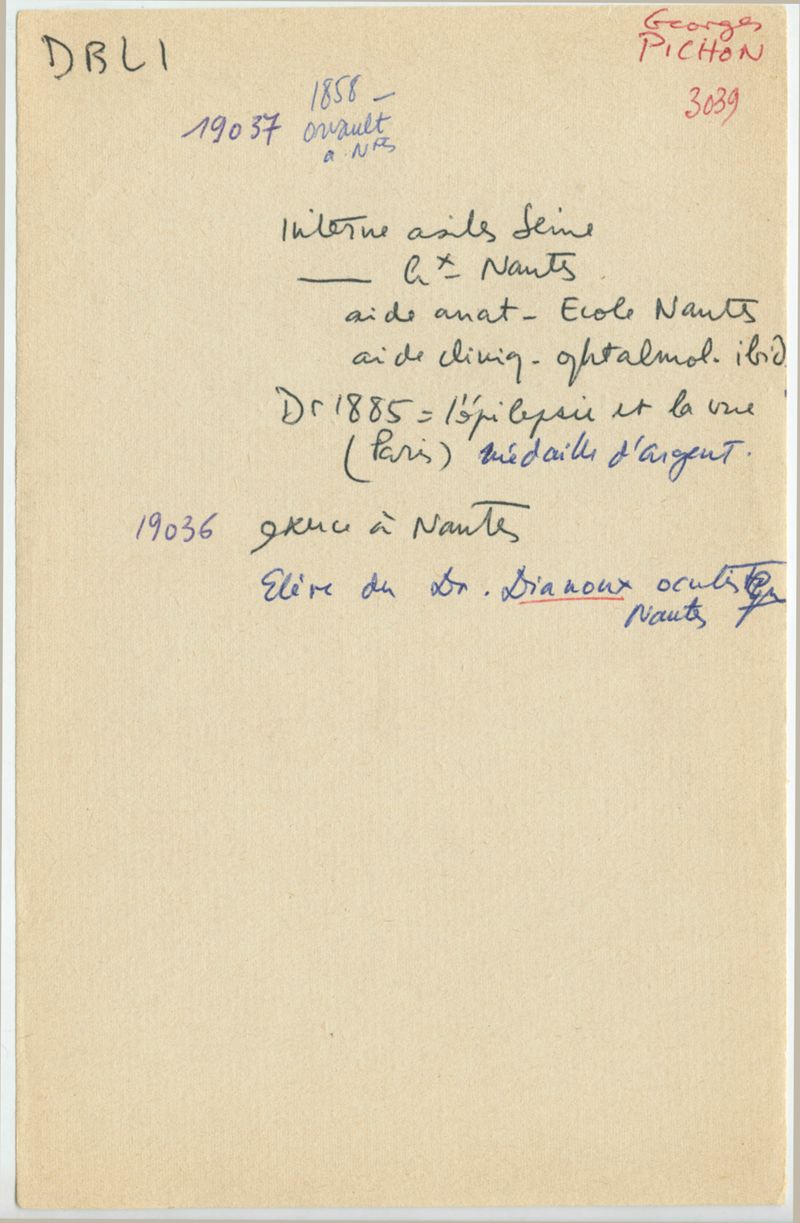 DBL1
Georges
PICHON
3039
1858 –
19037
a Ntes
Interne asiles Seine
—— hx – Nantes
aide anat – Ecole Nantes
aide cliniq – ophtalmol. ibid
Dr 1885 = l'épilepsie et la vue
(Paris) médaille d'argent.
19036 exerce à Nantes
Elève du Dr. Dianoux oculiste
Nantes